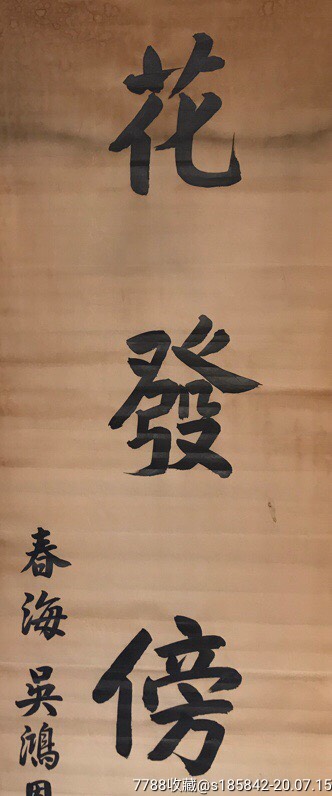 花發傍
春海吳鴻恩
7788收藏@s185842-20.07.15